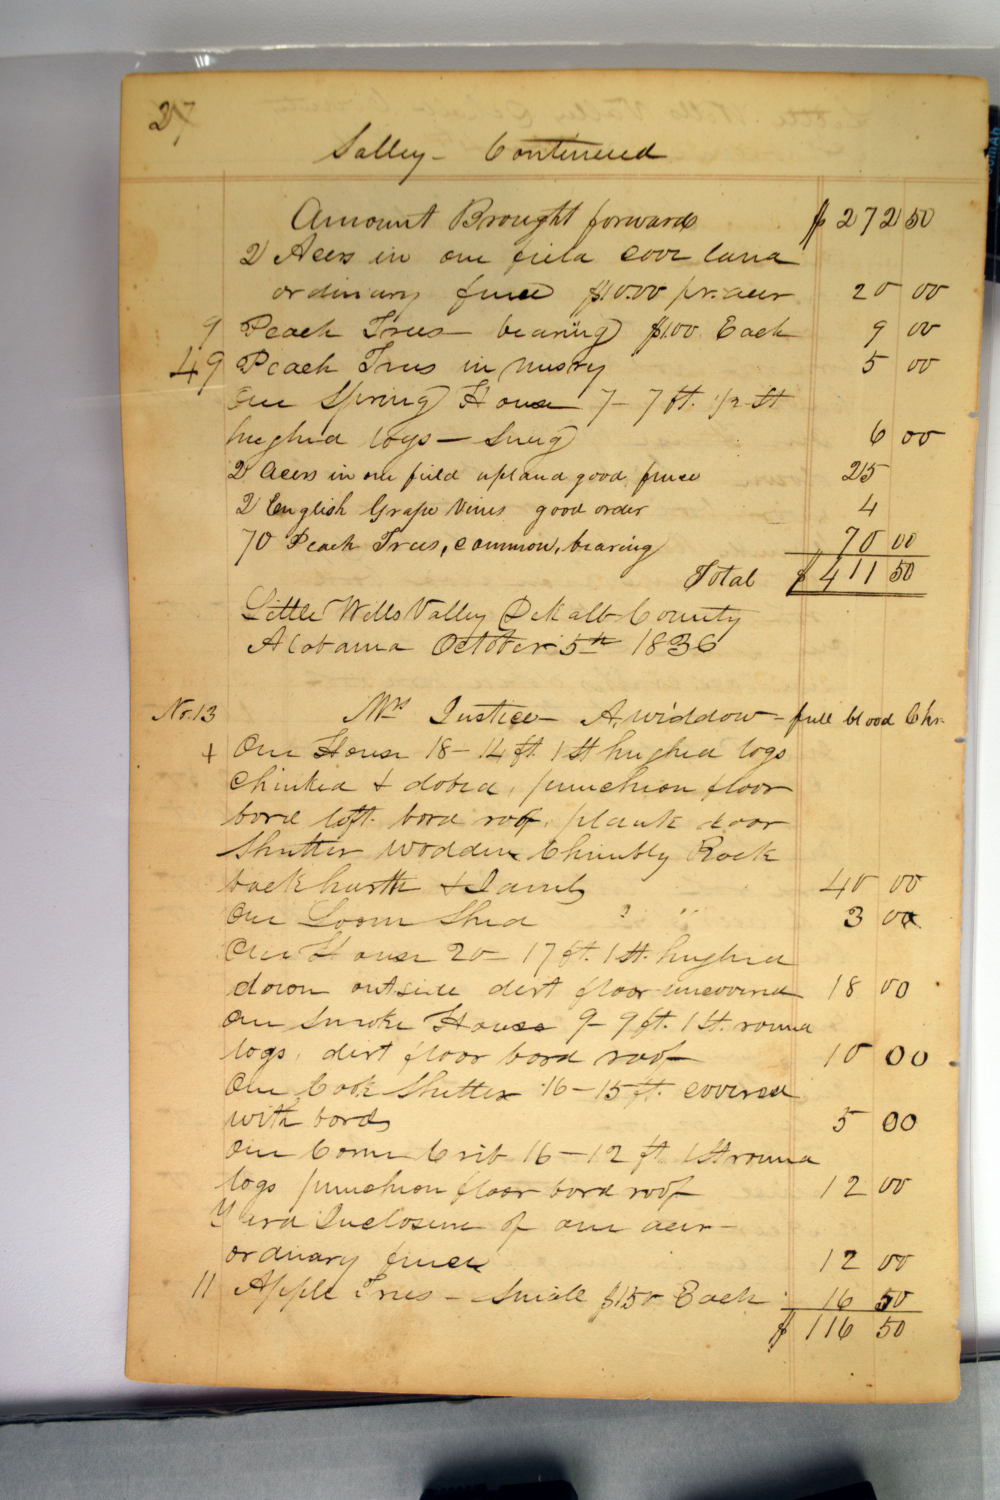 27
Salley - Continued
Amount Brought forward $ 272 50
2 Acers in one field cove land
ordinary fence $10.00 pr. acer 20 00
9 Peach Trees - bearing $1.00 Each 9 00
49 Peach Trees in nusry 5 00
One Spring House 7 - 7 ft. 1/2 St
hughed logs - Snug 6 00
2 Acers in one field upland good fence 25
2 English Grape Vines good order 4
70 Peach Trees, common, bearing 70 00
Total $ 411 50
Little Wills Valley DeKalb County
Alabama October 5th 1836
No. 13 Mrs Justice - A widdow - full blood Chr.
+ One House 18 - 14 ft. 1 St hughed logs
chinked & dobed, puncheon floor
bord loft. bord roof. plank door
Shutter wodden Chimbly Rock
back harth & Jambs 40 00
One Loom Shed " 3 00
One House 20 - 17 ft. 1 St. hughed
down outside dirt floor uncovered 18 00
One Smoke House 9 - 9 ft. 1 St. round
logs, dirt floor bord roof 10 00
One Cook Shutter 16 - 15 ft. covered
with bords 5 00
One Corn Crib 16 - 12 ft 1 St round
logs puncheon floor bord roof 12 00
Yard Inclosure of one acer -
ordinary fence 12 00
11 Apple Trees - Small $1.50 Each 16 50
$ 116 50